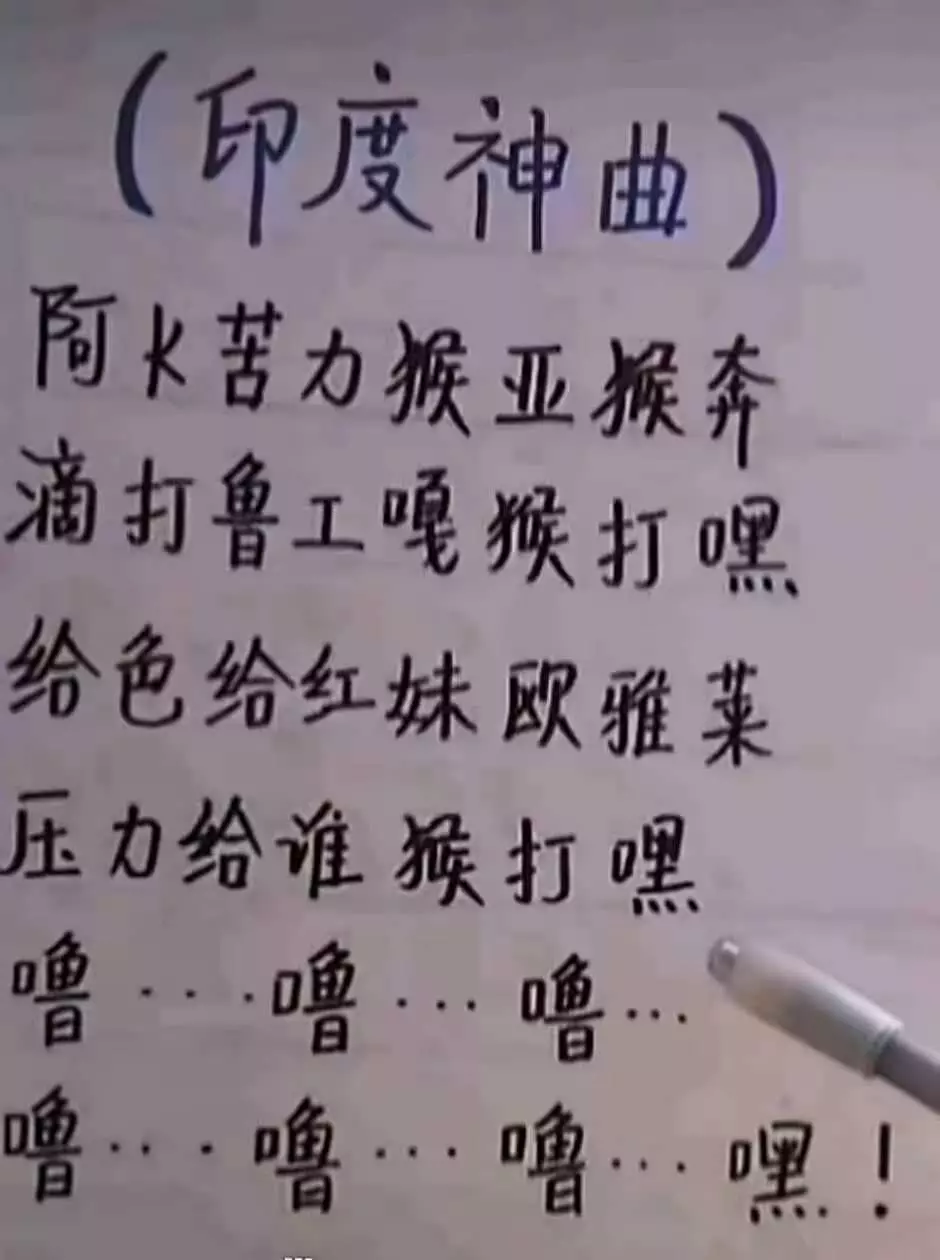 (印度神曲)
阿K苦力猴亚猴奔
滴打鲁工嘎猴打嘿
给色给红妹欧雅莱
压力给谁猴打嘿
噜···噜···噜···
噜···噜···噜···嘿!